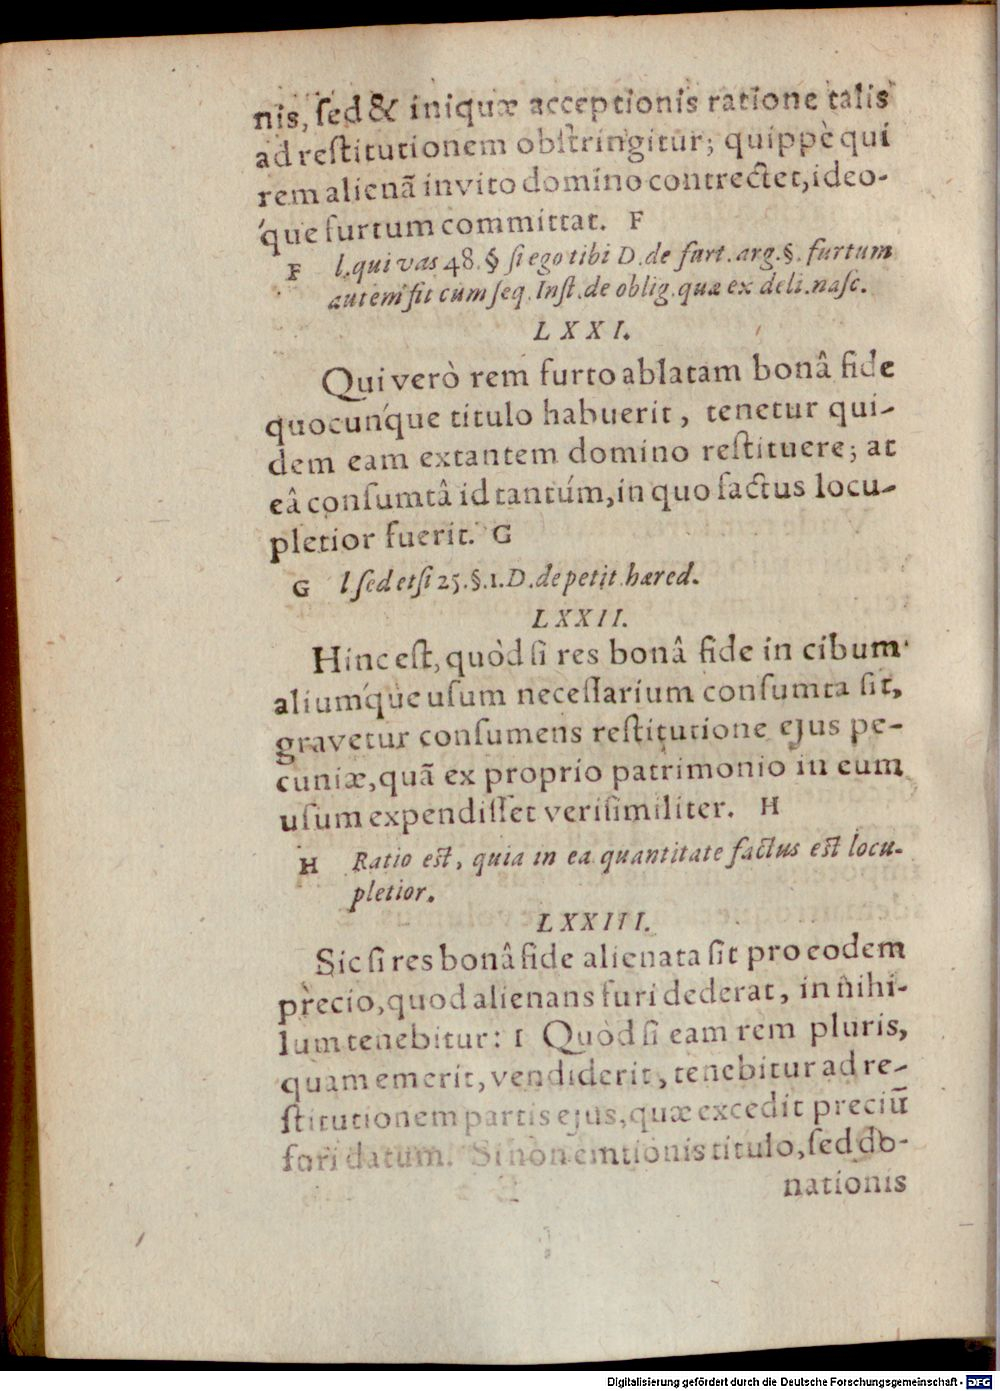 nis, ſed & iniquæ acceptionis ratione talis
ad reſtitutionem obſtringitur; quippè qui
rem alienã invito domino contrectet, ideo-
q́ue furtum committat. F
F l. qui vas 48. § ſi ego tibi D. de furt. arg. §. furtum
autem fit cum ſeq. Inſt. de oblig. quæ ex deli. naſc.
LXXI.
Qui verò rem furto ablatam bonâ fide
quocunq́ue titulo habuerit, tenetur qui-
dem eam extantem domino reſtituere; at
eâ conſumtâ id tantúm, in quo factus locu-
pletior fuerit. G
G l ſed etſi 25. §. 1. D. de petit. hæred.
LXXII.
Hinc eſt, quòd ſi res bonâ fide in cibum
aliumq́ue uſum neceſſarium conſumta ſit,
gravetur conſumens reſtitutione ejus pe-
cuniæ, quã ex proprio patrimonio in eum
uſum expendiſſet veriſimiliter. H
H Ratio eſt, quia in ea quantitate factus eſt locu-
pletior.
LXXIII.
Sic ſi res bonâ fide alienata ſit pro eodem
precio, quod alienans furi dederat, in nihi-
lum tenebitur: I Quòd ſi eam rem pluris,
quam emerit, vendiderit, tenebitur ad re-
ſtitutionem partis ejus, quæ excedit preciũ
furi datum. Si non emtionis titulo, ſed do-
nationis
Digitalisierung gefördert durch die Deutsche Forschungsgemeinschaft - DFG